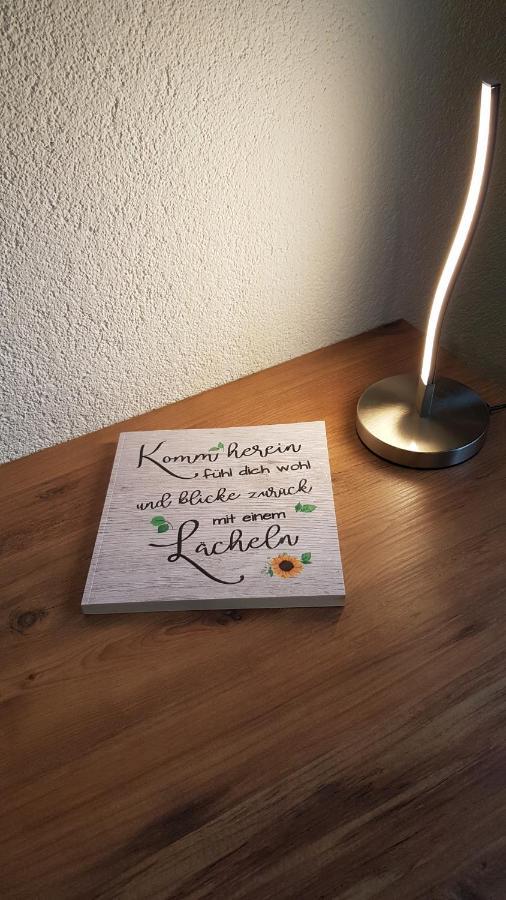 Komm herein
fühl dich wohl
und blicke zurück
mit einem
Lächeln